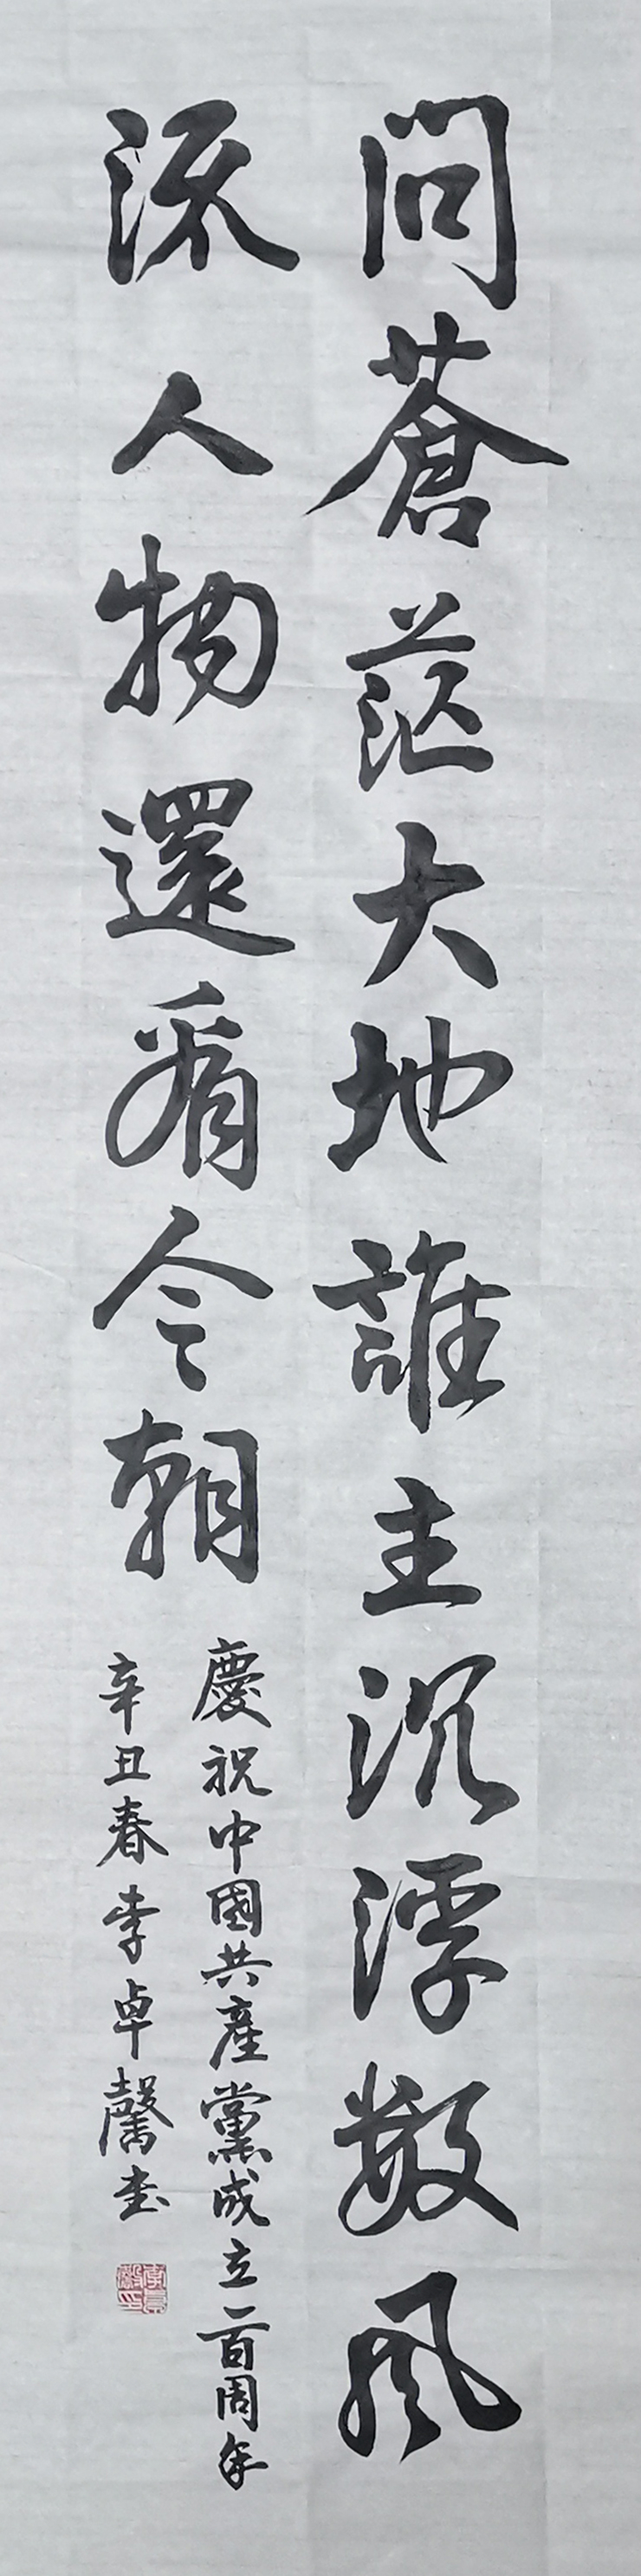 問蒼茫大地誰主沉浮数風
流人物還看今朝
慶祝中國共產黨成立一百周年
辛丑春李卓馨书